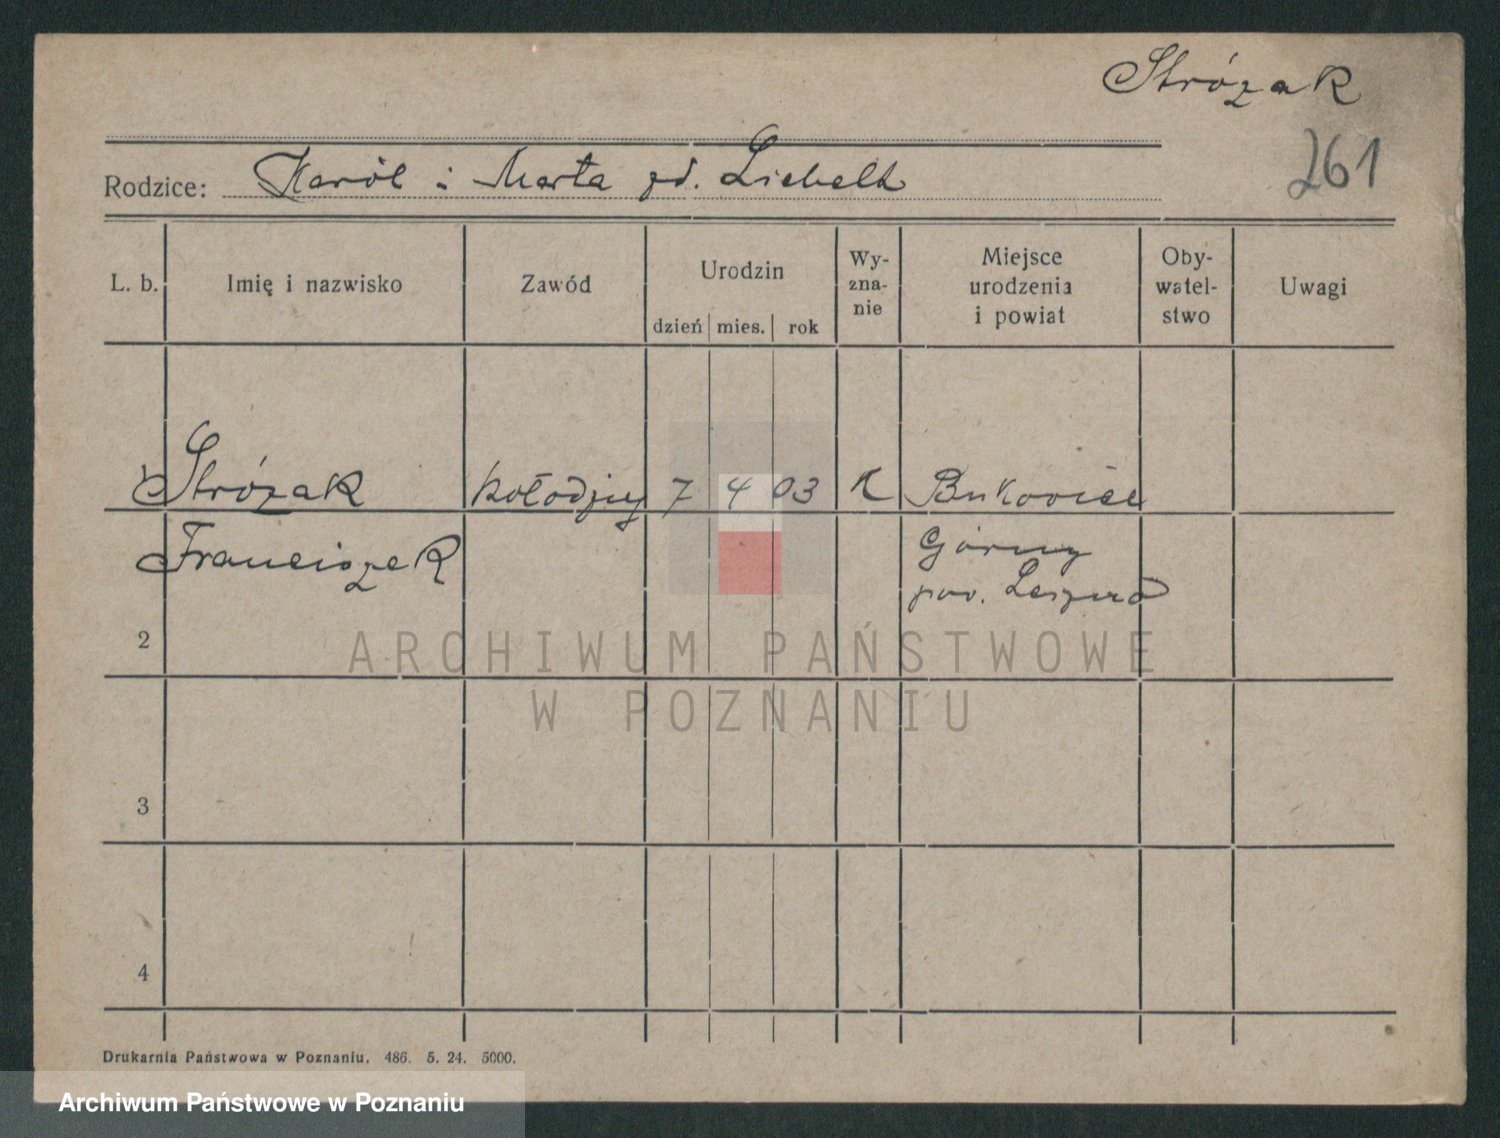 Stróżak
261
Rodzice: Karól i Marta zd. Liebelt
L. b.
Imię i nazwisko
Zawód
Urodzin
dzień mies. rok
Wy-
zna-
nie
Miejsce
urodzenia
i powiat
Oby-
watel-
stwo
Uwagi
Stróżak kołodziej 7 4 03 K Bukowiec
Franciszek Górny
pow. Leszno
2
3
4
ARCHIWUM PAŃSTWOWE
W POZNANIU
Drukarnia Państwowa w Poznaniu. 486. 5. 24. 5000.
Archiwum Państwowe w Poznaniu